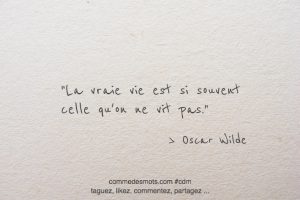 "La vraie vie est si souvent
celle qu'on ne vit pas."
> Oscar Wilde
commedesmots.com #cdm
taguez, likez, commentez, partagez ...